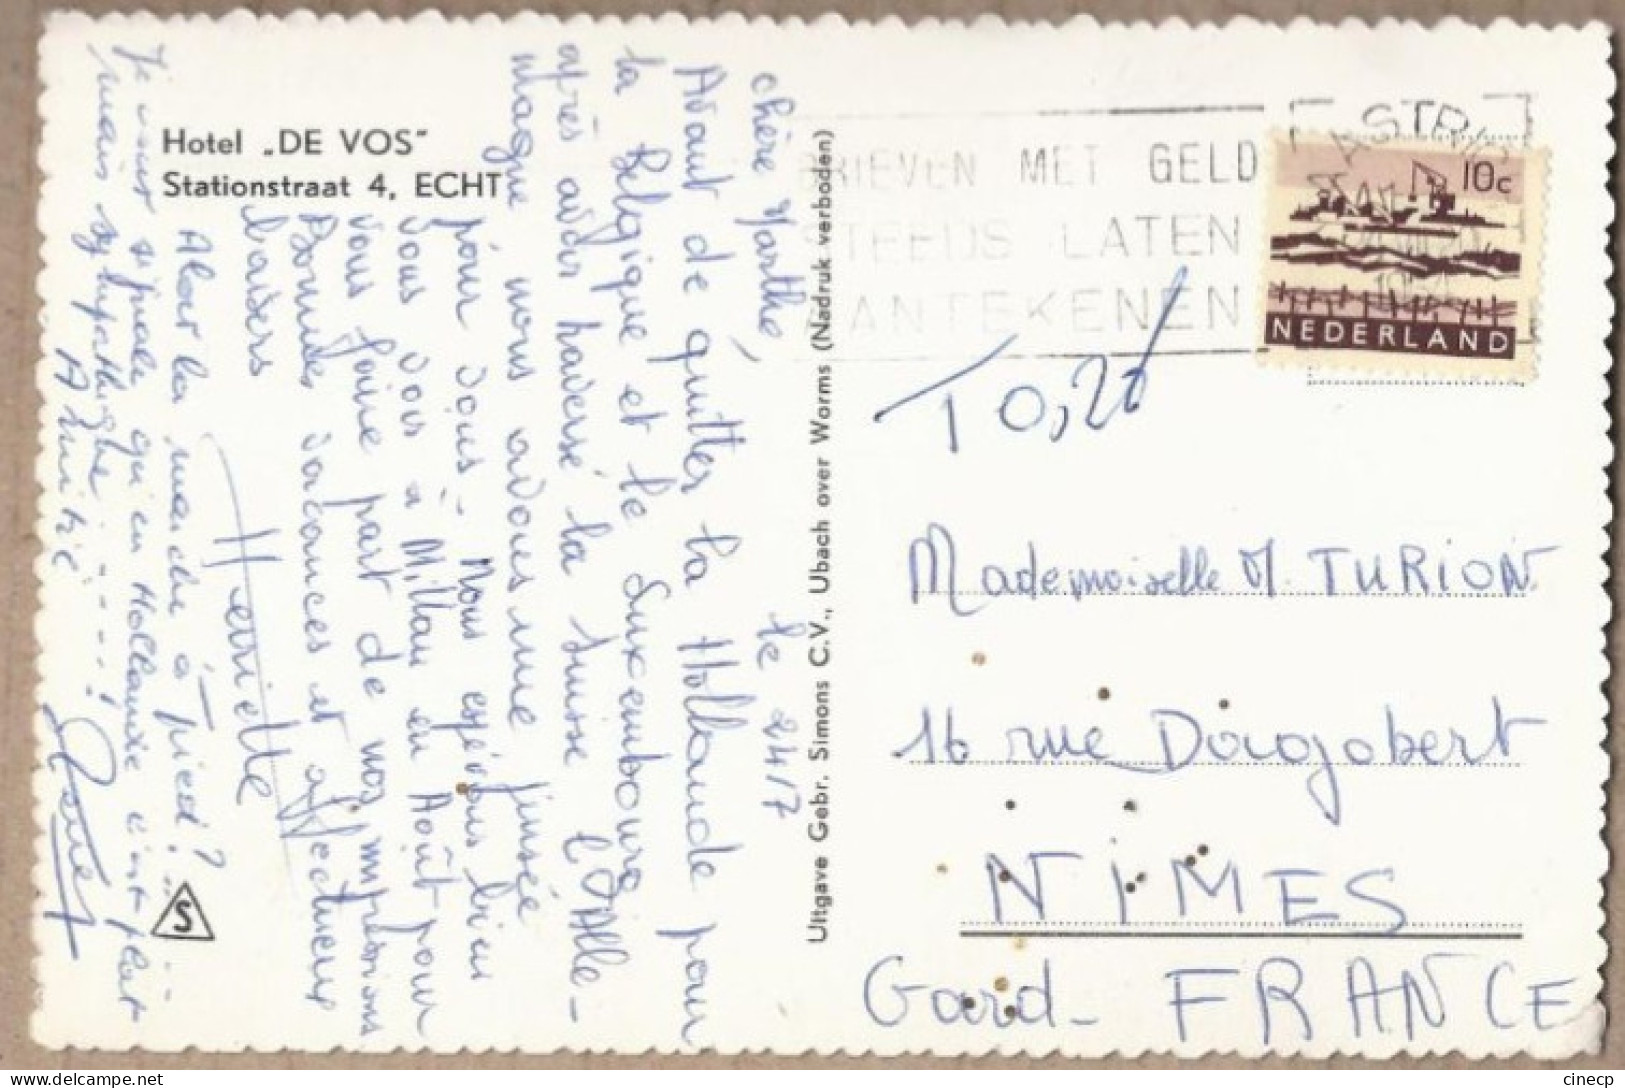 Hotel „DE VOS"
Stationstraat 4, ECHT
chère Marthe,
le 24/7
Avant de quitter la Hollande pour
la Belgique et le Luxembourg
après avoir traversé la Suisse l'Alle-
magne nous avons une pensée
pour vous - Nous espérons bien
vous voir à Millau en Août pour
vous faire part de nos impressions
Bonnes vacances et affectueux
baisers
Henriette
Alors la marche à pied? ...
Je vous signale qu'en Hollande c'est plat
mais sympathique ....!
Amitié
Uitgave Gebr. Simons C.V., Ubach over Worms (Nadruk verboden)
S
BRIEVEN MET GELD
STEEDS LATEN
AANTEKENEN
10c
NEDERLAND
T 0,20
Mademoiselle M. TURION
16 rue Dagobert
NIMES
Gard - FRANCE
cinecp